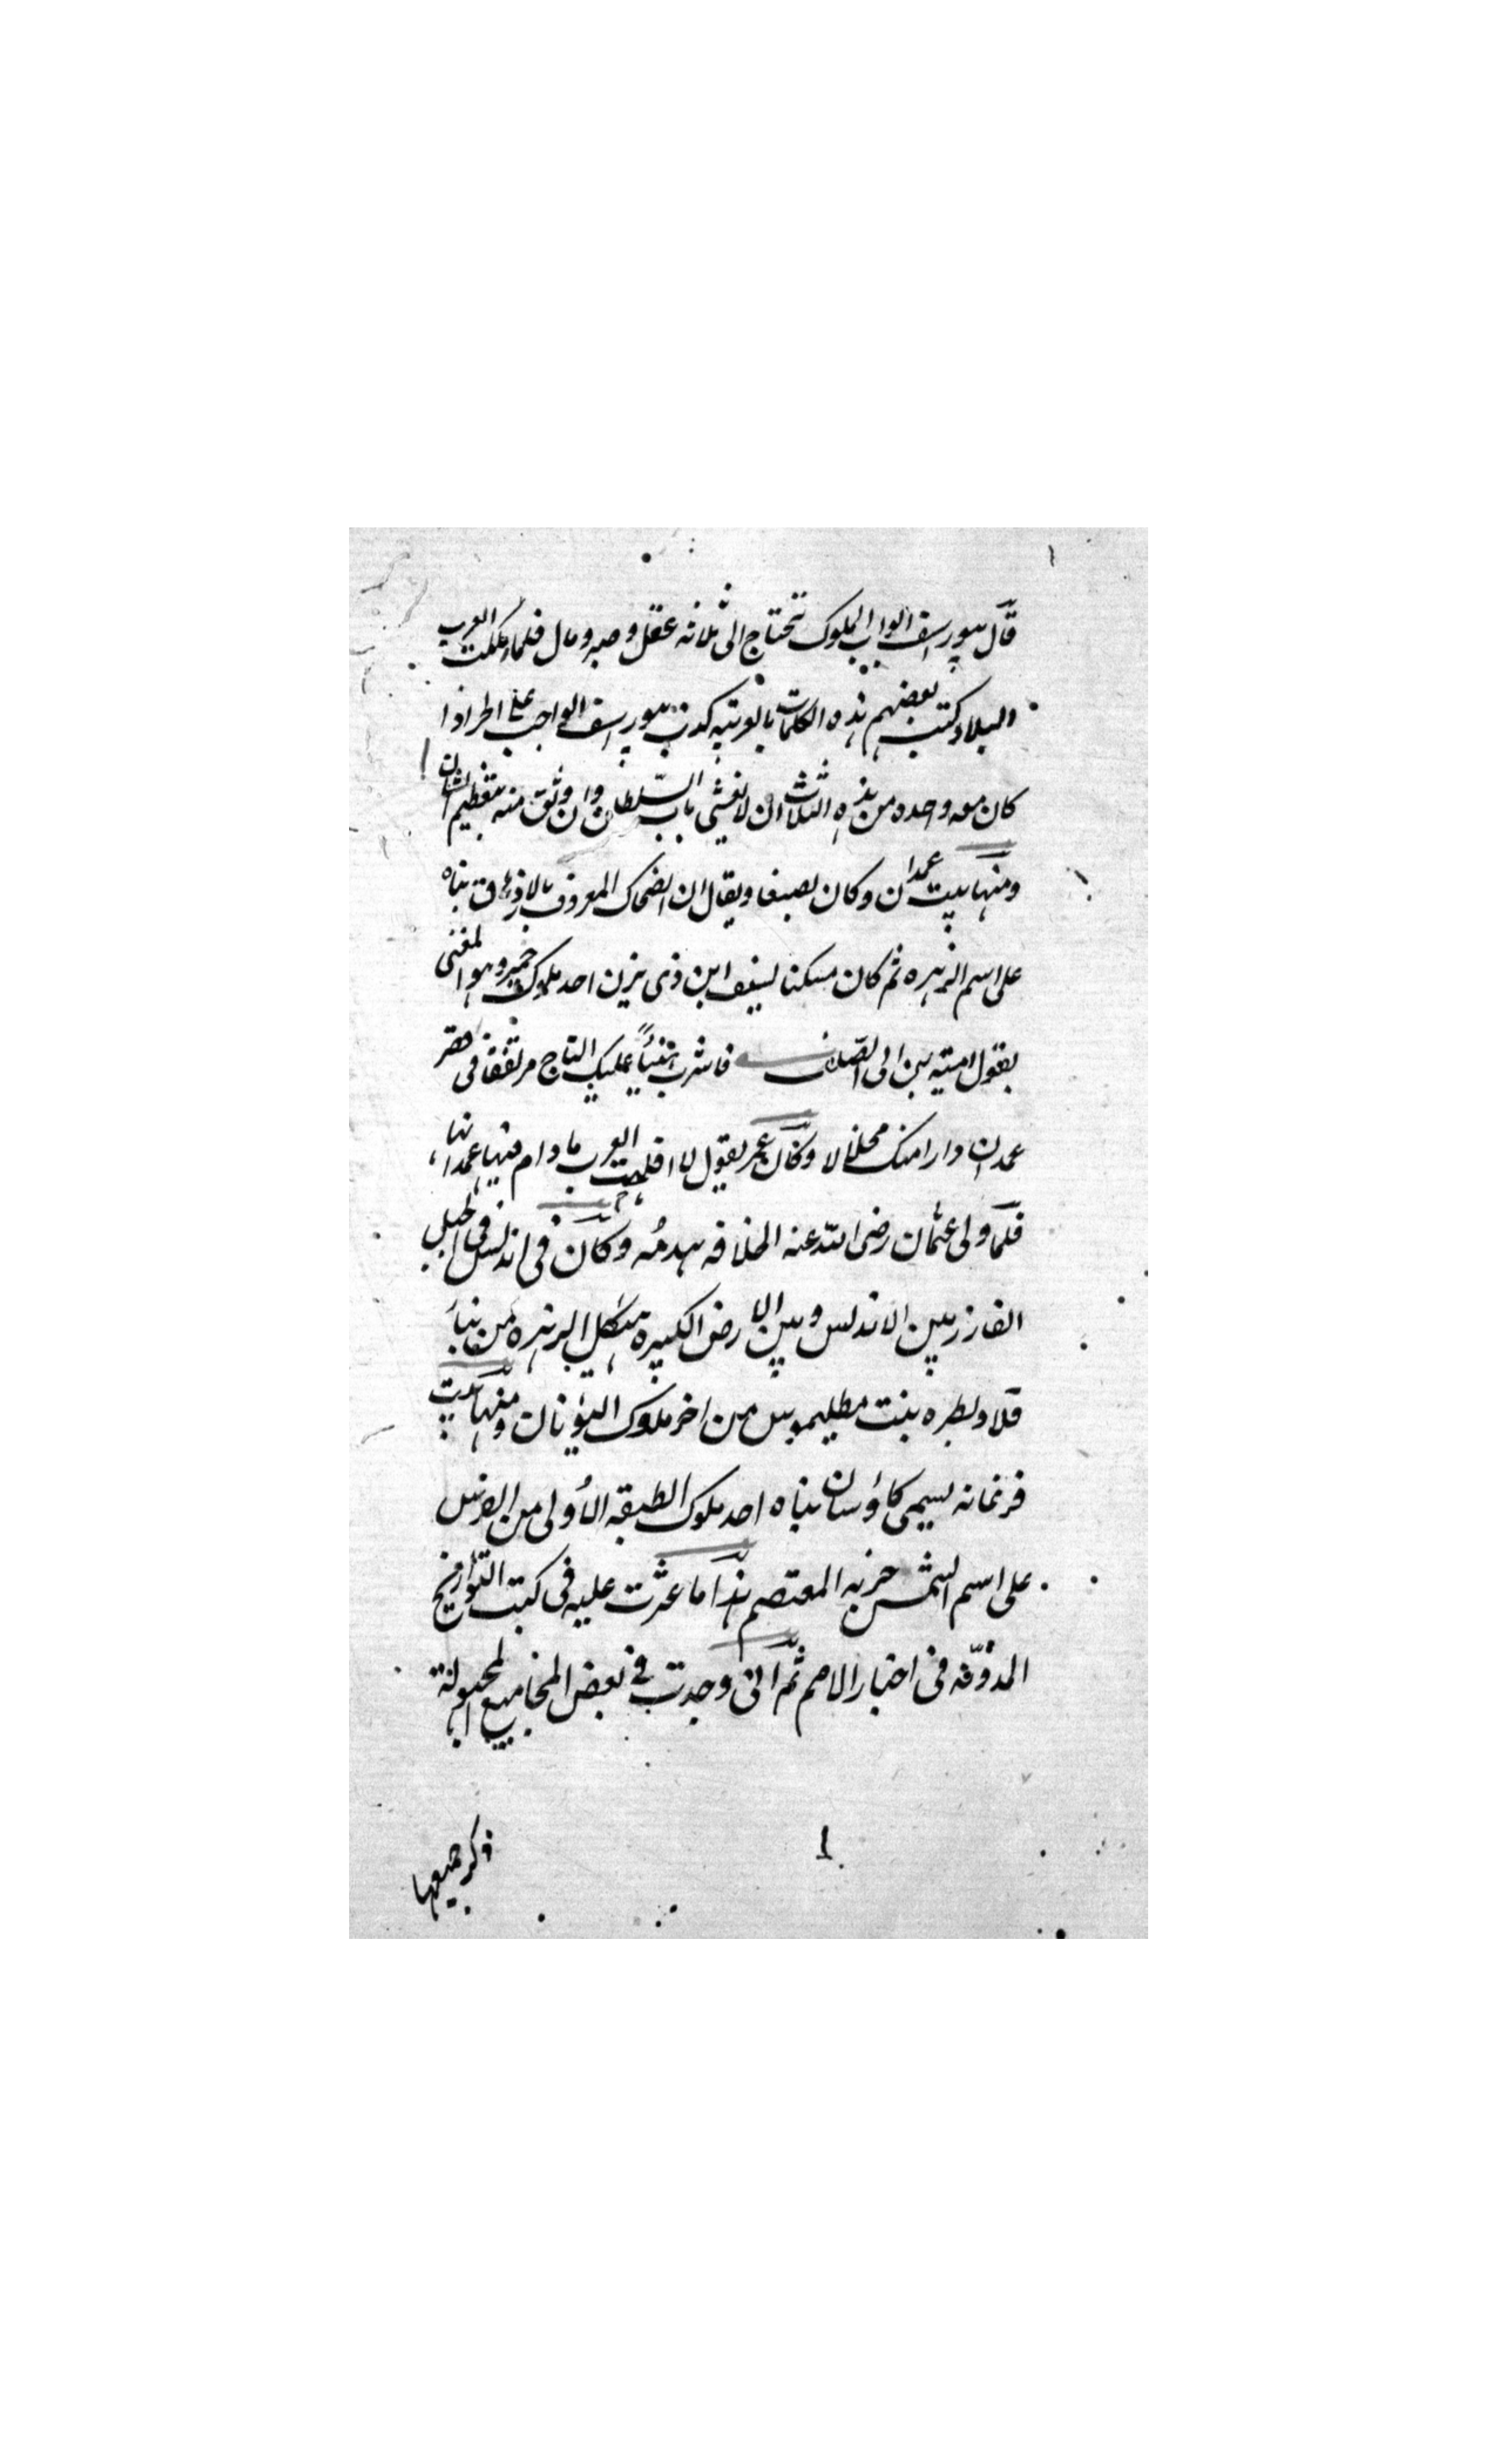 قال بيوراسف ابواب الملوك تحتاج الى ثلاثه عقل وصبر ومال فلما ملكت العرب
البلاد كتب بعضهم هذه الكلمات بالعربيه كذب بيوراسف الواجب على الحر اذا
كان معه واحده من هذه الثلاث ان لا يغشى باب السلطان وان وثق منه بتعظيم الشان
ومنها بيت غمدان وكان بصنعا ويقال ان الضحاك المعروف بالازدهاق بناه
على اسم الزهره ثم كان مسكنا لسيف ابن ذى يزن احد ملوك حمير وهو المعنى
بقول اميه بن ابى الصلت فاشرب هنيئاً عليك التاج مرتفقا فى قصر
غمدان دارا منك محلالا وكان عمر يقول لا افلحت العرب ما دام فيها غمدانها
فلما ولى عثمان رضى الله عنه الخلافه هدمُه وكان فى اندلس فى الجبل
الفارز بين الاندلس وبين الارض الكبيره هيكل الزهره من بناء
قلاوبطره بنت بطليموس من اخر ملوك اليونان ومنها بيت
فرغانه يسمى كاؤسان بناه احد ملوك الطبقه الأولى من الفرس
على اسم الشمس خربه المعتصم هذا ما عثرت عليه فى كتب التواريخ
المدونه فى اخبار الامم ثم انى وجدت فى بعض المجاميع المجهوله
ذكر جميعها